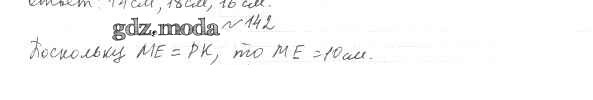 Ответ: 14см, 18см, 16 см.
gdz.moda №142
Поскольку ME = PK, то ME = 10см.